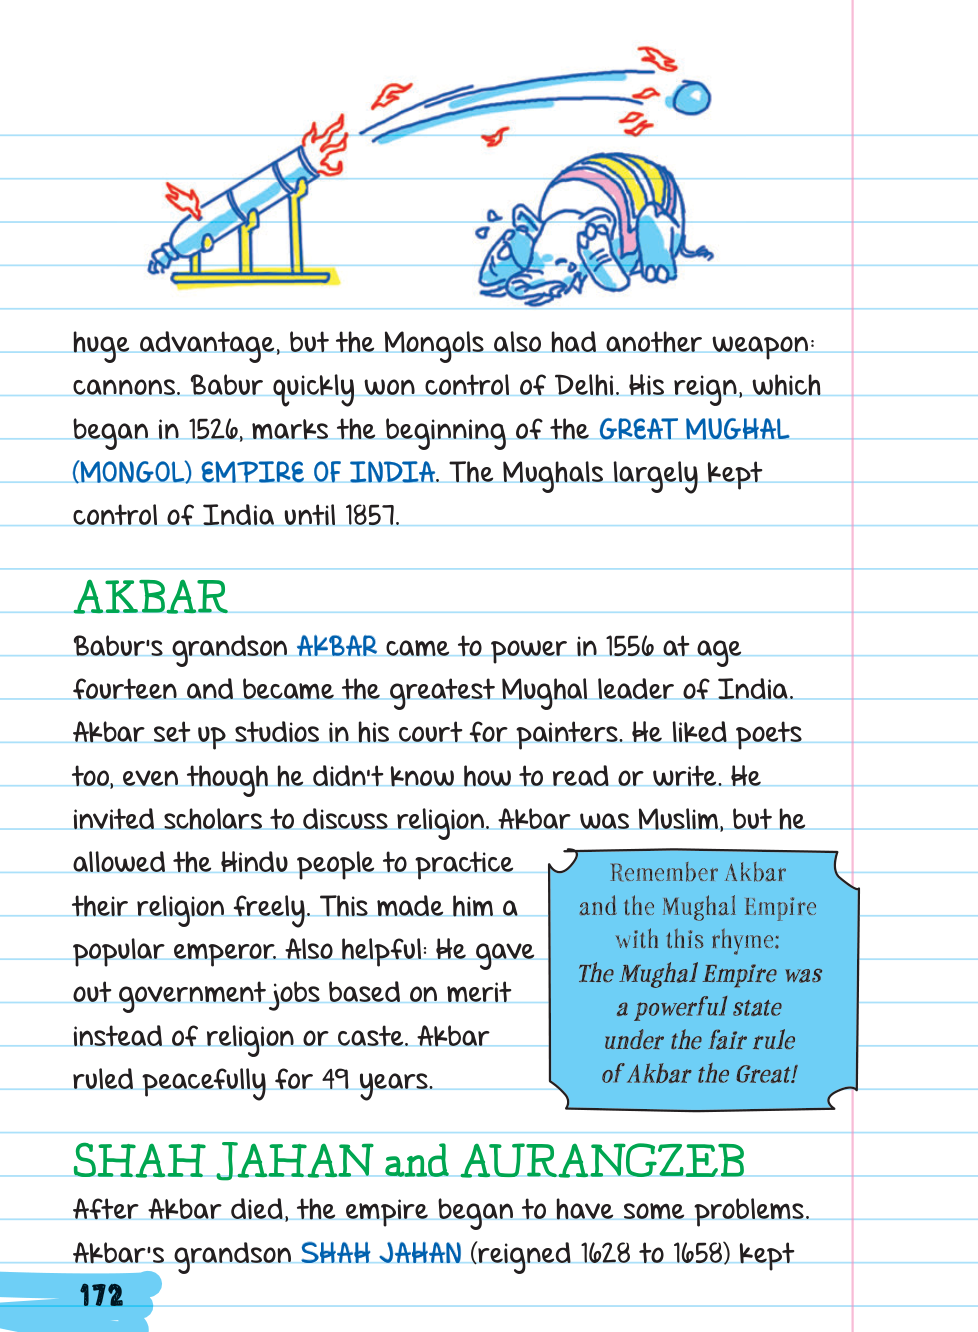 huge advantage, but the Mongols also had another weapon:
cannons. Babur quickly won control of Delhi. His reign, which
began in 1526, marks the beginning of the GREAT MUGHAL
(MONGOL) EMPIRE OF INDIA. The Mughals largely kept
control of India until 1857.
AKBAR
Babur's grandson AKBAR came to power in 1556 at age
fourteen and became the greatest Mughal leader of India.
Akbar set up studios in his court for painters. He liked poets
too, even though he didn't know how to read or write. He
invited scholars to discuss religion. Akbar was Muslim, but he
allowed the Hindu people to practice
their religion freely. This made him a
popular emperor. Also helpful: He gave
out government jobs based on merit
instead of religion or caste. Akbar
ruled peacefully for 49 years.
Remember Akbar
and the Mughal Empire
with this rhyme:
The Mughal Empire was
a powerful state
under the fair rule
of Akbar the Great!
SHAH JAHAN and AURANGZEB
After Akbar died, the empire began to have some problems.
Akbar's grandson SHAH JAHAN (reigned 1628 to 1658) kept
172